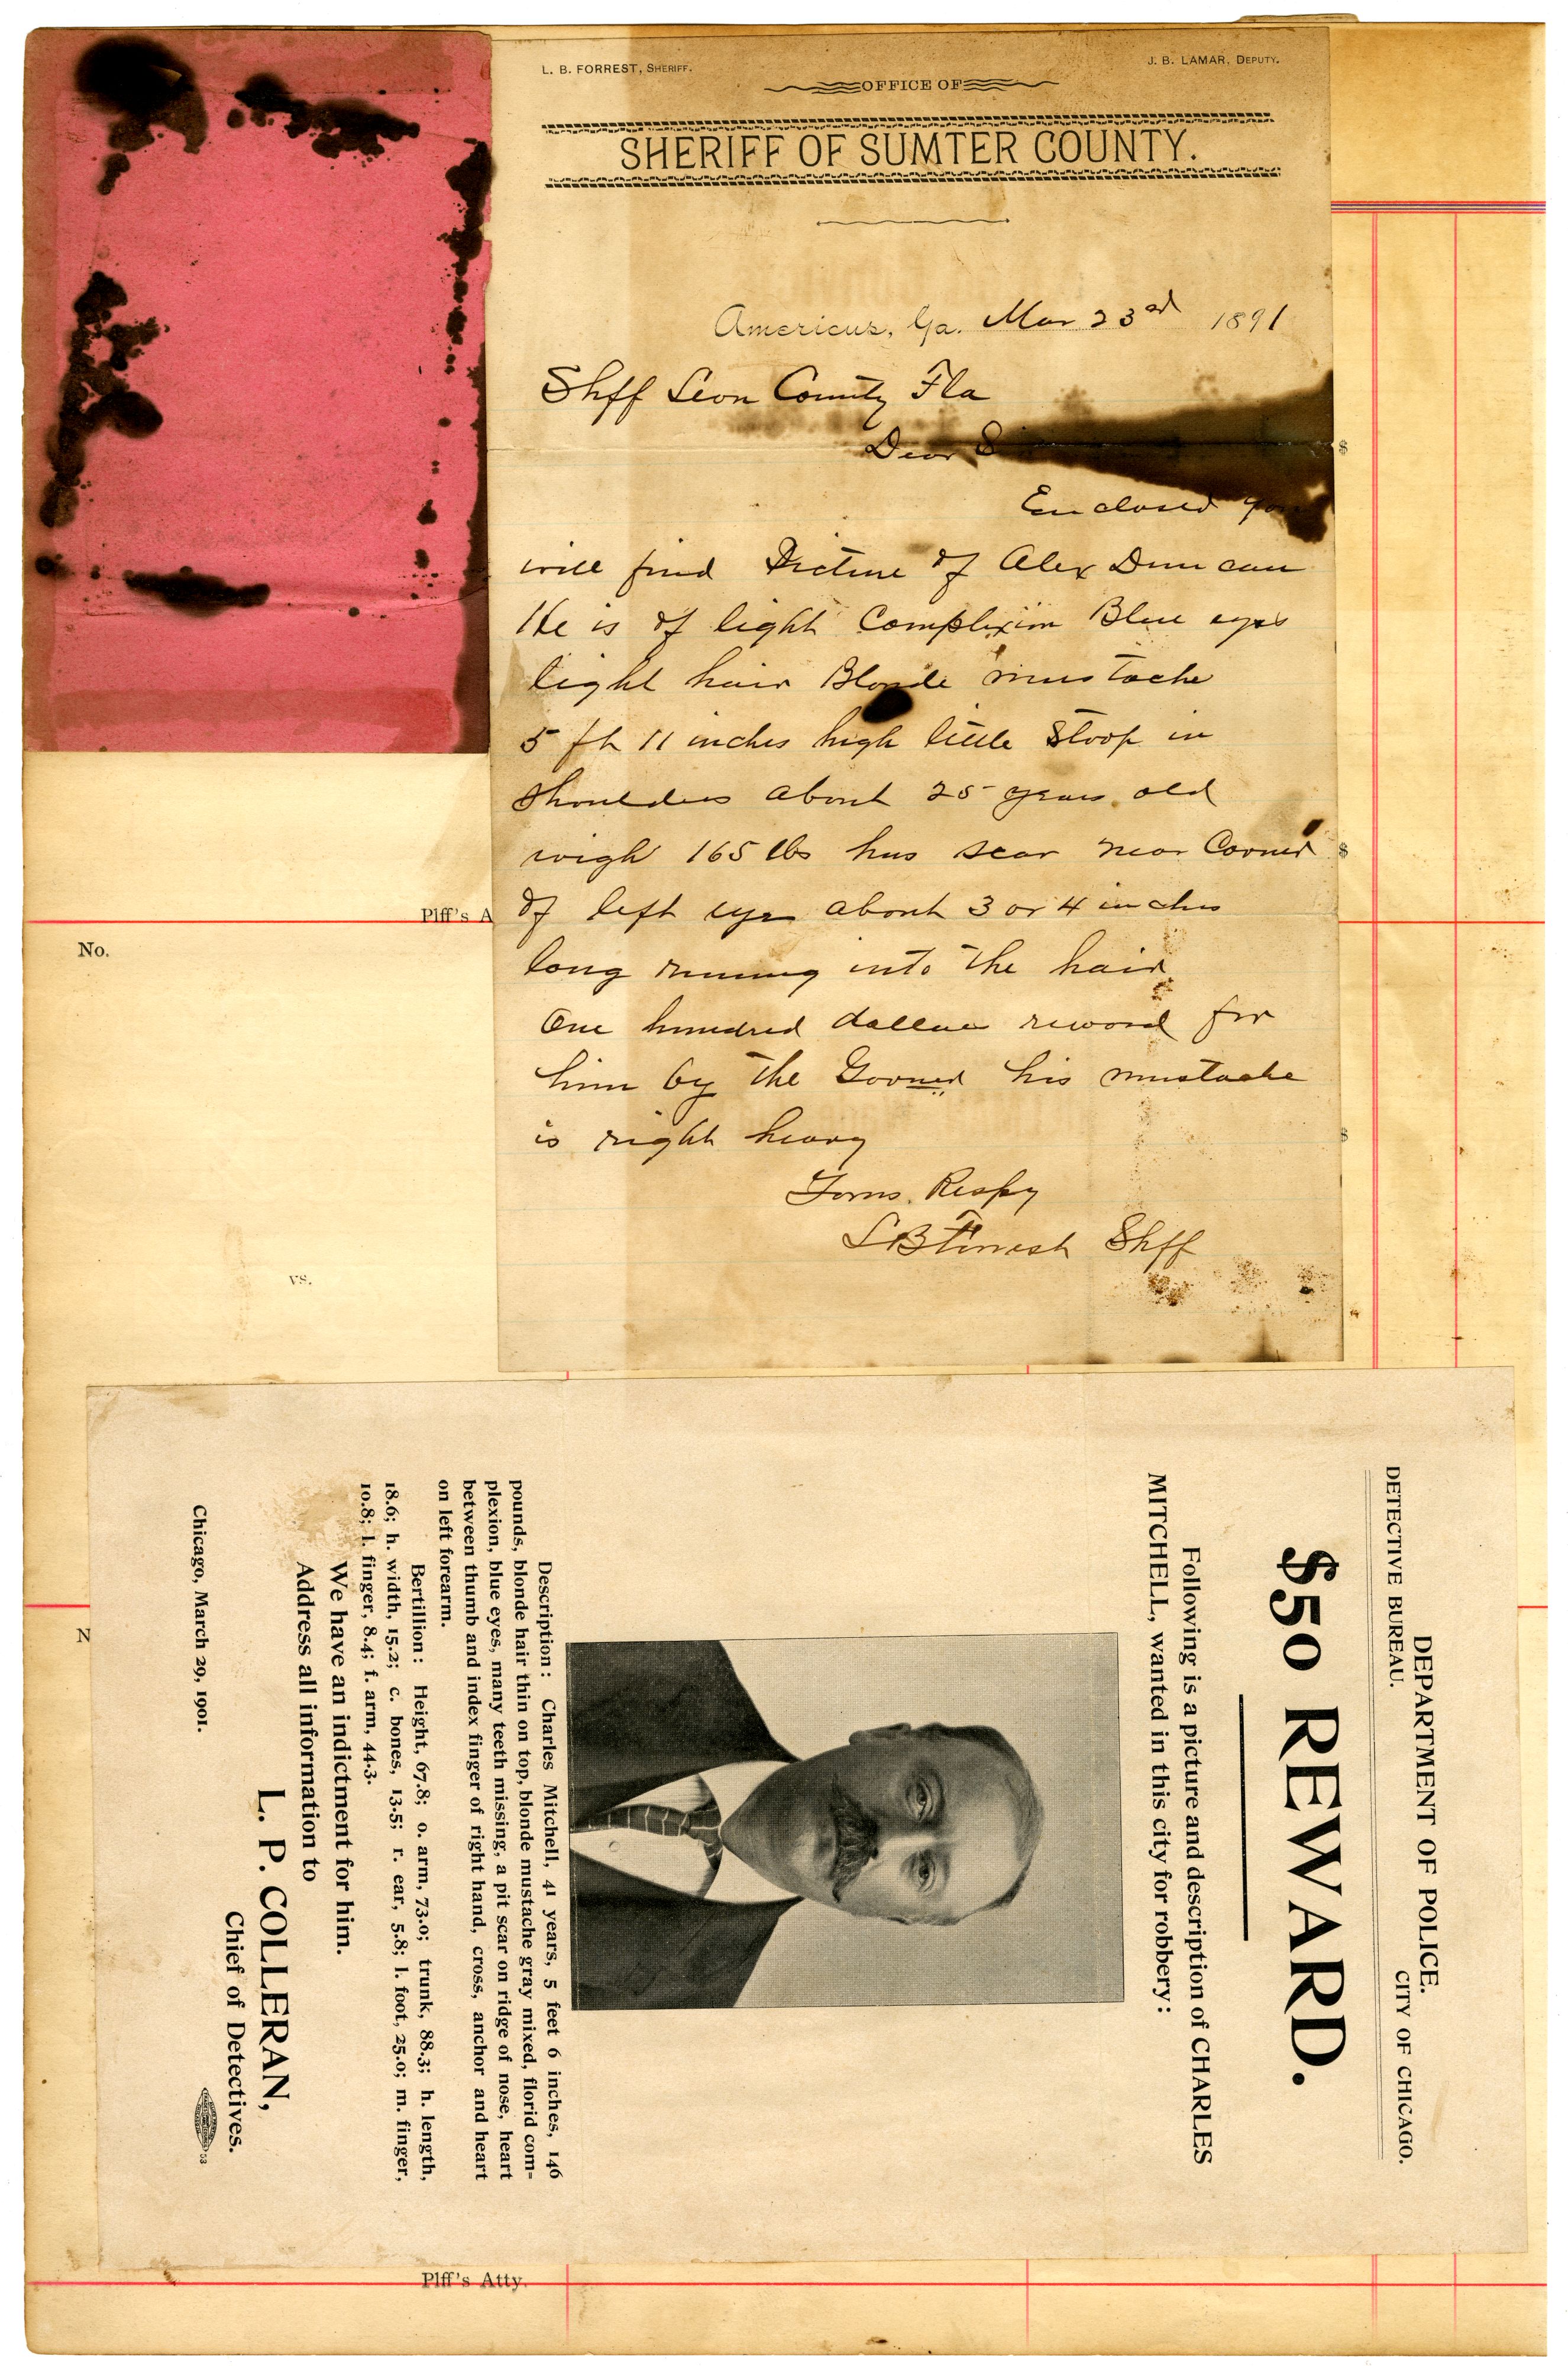 L. B. FORREST, SHERIFF.
J. B. LAMAR, DEPUTY.
OFFICE OF
SHERIFF OF SUMTER COUNTY.
Americus, Ga. Mar 23rd 1891
Shff Leon County Fla
Dear
Enclosed you
will find Picture of Alex Duncan
He is of light Complexion Blue eyes
light hair Blonde mustache
5 ft 11 inches high little Stoop in
Shoulders about 25 years old
wigh 165 lbs has scar near Corner
of left eye about 3 or 4 inches
long runing into the hair
One hundred dollar reward for
him by the his mustache
is right heavy
Yours Respy
L B Forrest Shff
Plff's A
No.
vs.
$
$
$
DEPARTMENT OF POLICE.
DETECTIVE BUREAU.
CITY OF CHICAGO.
$50 REWARD.
Following is a picture and description of CHARLES
MITCHELL, wanted in this city for robbery:
Description: Charles Mitchell, 41 years, 5 feet 6 inches, 146
pounds, blonde hair thin on top, blonde mustache gray mixed, florid com-
plexion, blue eyes, many teeth missing, a pit scar on ridge of nose, heart
between thumb and index finger of right hand, cross, anchor and heart
on left forearm.
Bertillion: Height, 67.8; o. arm, 73.0; trunk, 88.3; h. length,
18.6; h. width, 15.2; c. bones, 13.5; r. ear, 5.8; l. foot, 25.0; m. finger,
10.8; l. finger, 8.4; f. arm, 44.3.
We have an indictment for him.
Address all information to
L. P. COLLERAN,
Chief of Detectives.
Chicago, March 29, 1901.
53
N
Plff's Atty.